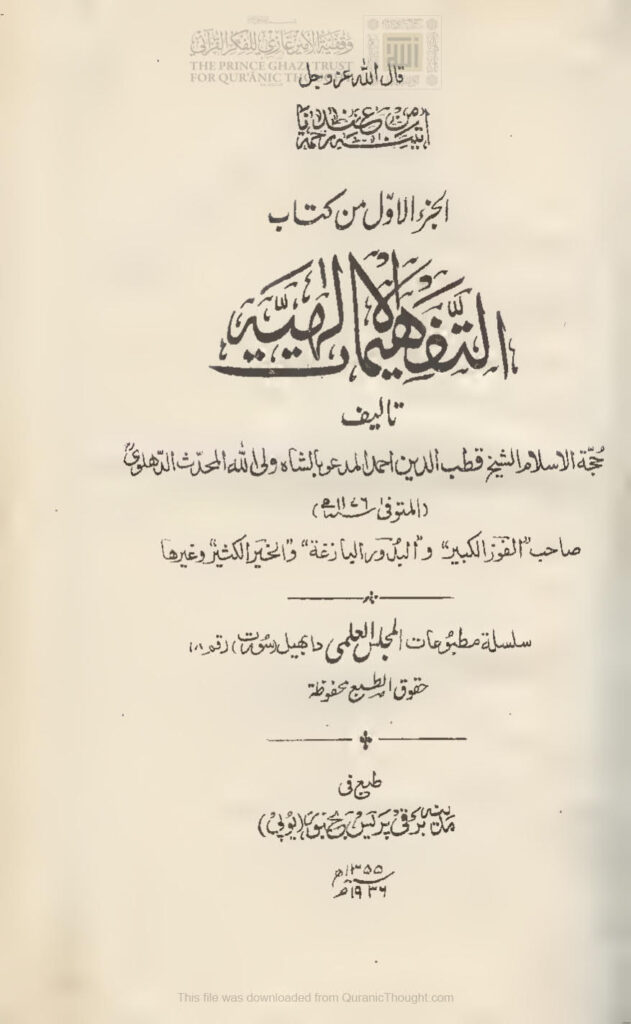 وقفية الأمير غازي للفكر القرآني
THE PRINCE GHAZI TRUST
FOR QURʾĀNIC THOUGHT
قال الله عز وجل
اتيناه رحمة من عندنا
الجزء الاوّل من كتاب
التَّفهيمات الالهيّة
تاليف
حُجّة الاسلام الشيخ قطب الدين احمد المدعو بالشاه ولى الله المحدّث الدّهلوىؒ
(المتوفى سنة ١١٧٦ھ)
صاحب "الفوز الكبير" و"البُدُور البازغة" و"الخير الكثير" وغيرها
سلسلة مطبوعات المجلس العلمى دابهيل (سُورت) رقم ١٨
حقوق الطبع محفوظة
طبع فى
مدينه برقى پريس بجنور (يُوپى)
١٣٥٥ھ
١٩٣٦م
This file was downloaded from QuranicThought.com